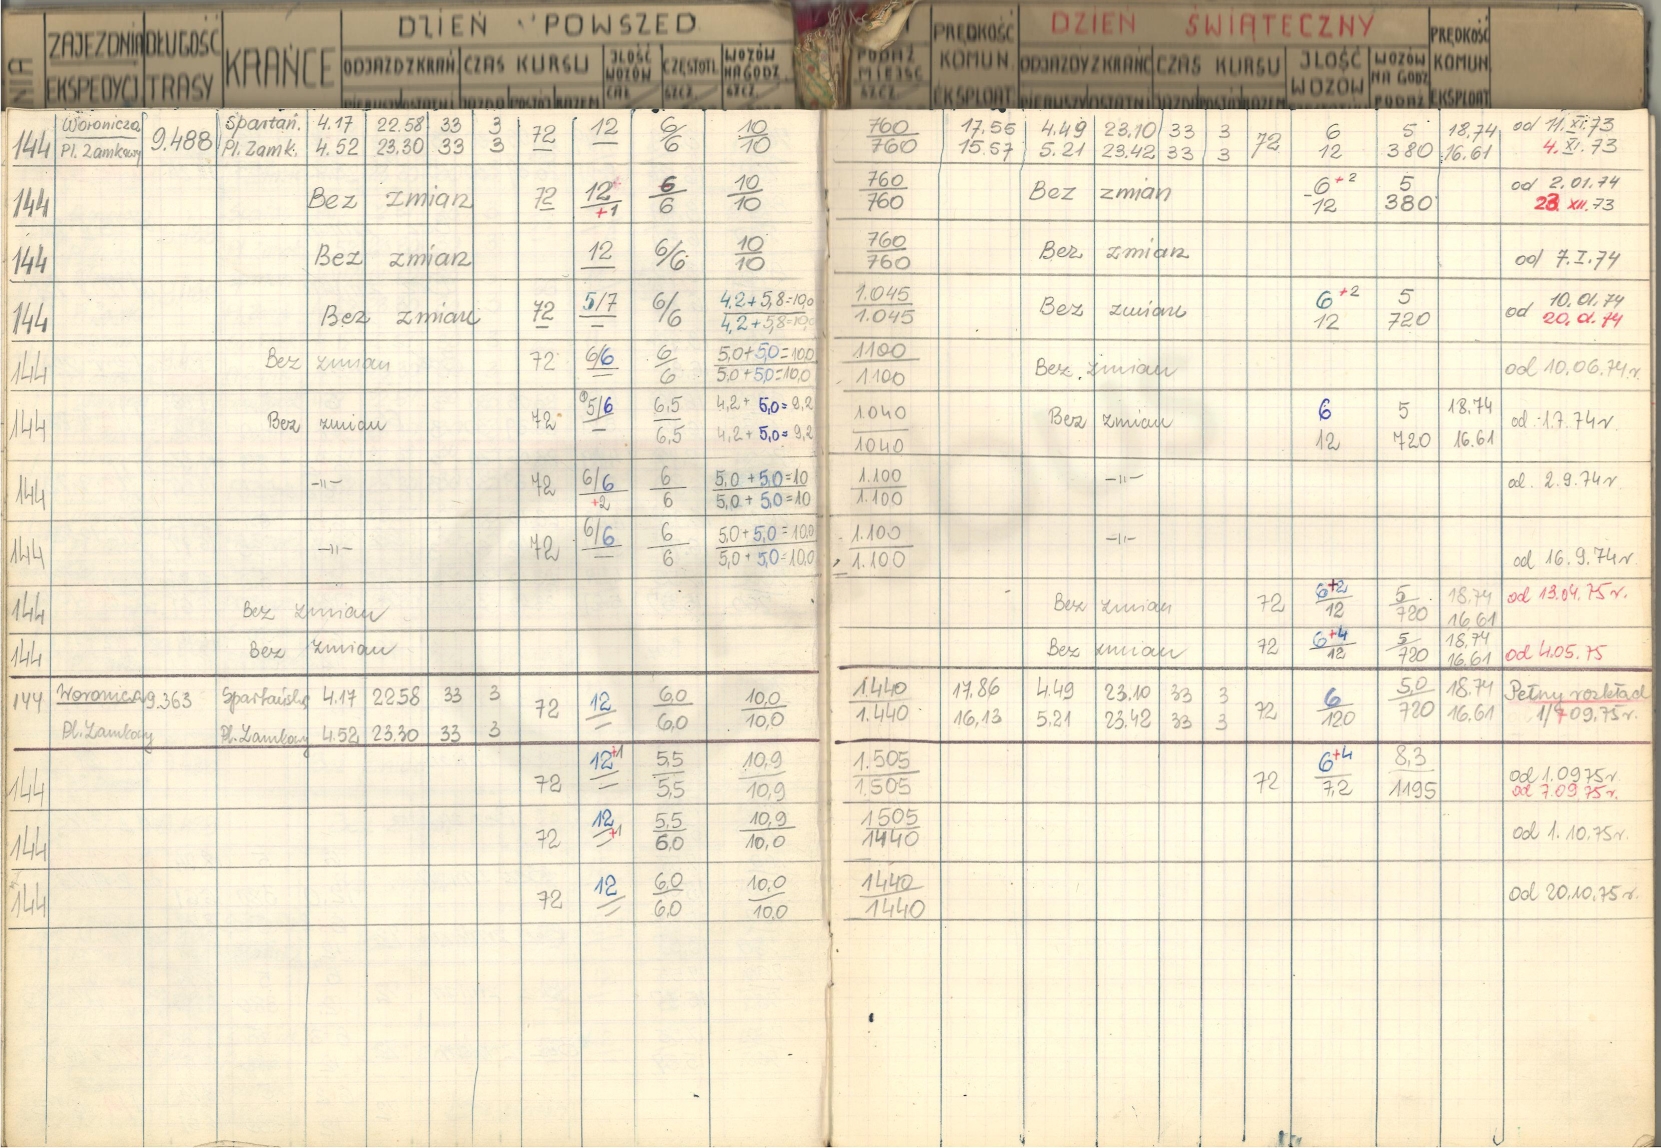 ZAJEZDNIA DŁUGOŚĆ KRAŃCE DZIEŃ POWSZED PRĘDKOŚĆ DZIEŃ ŚWIĄTECZNY PRĘDKOŚĆ
EKSPEDYCJ TRASY ODJAZD Z KRAŃ CZAS KURSU JLOŚĆ WOZÓW CZĘSTOTL. WOZÓW NA GODZ. PODAŻ MIEJSC KOMUN. ODJAZDY Z KRAŃC CZAS KURSU JLOŚĆ WOZÓW WOZÓW NA GODZ KOMUN.
EKSPLOAT EKSPLOAT
144 Woronicza 9.488 Spartań. 4.17 22.58 33 3 72 12 6/6 10/10 760/760 17.56 4.49 23.10 33 3 72 6 5 18,74 od 11.XI.73
Pl. Zamkowy Pl. Zamk. 4.52 23.30 33 3 15.57 5.21 23.42 33 3 12 380 16.61 4.XI.73
144 Bez zmian 72 12 +1 6/6 10/10 760/760 Bez zmian 6+2 5 od 2.01.74
12 380 23.XII.73
144 Bez zmian 12 6/6 10/10 760/760 Bez zmian od 7.I.74
144 Bez zmian 72 5/7 6/6 4,2+5,8=10,0 1.045 Bez zmian 6+2 5 od 10.01.74
4,2+5,8=10,0 1.045 12 720 20.01.74
144 Bez zmian 72 6/6 6/6 5,0+5,0=10,0 1100 Bez zmian od 10.06.74r.
5,0+5,0=10,0 1100
144 Bez zmian 72 5/6 6,5 4,2+5,0=9,2 1040 Bez zmian 6 5 18.74 od 1.7.74r.
6,5 4,2+5,0=9,2 1040 12 720 16.61
144 -"- 72 6/6 +2 6 5,0+5,0=10 1.100 -"- od. 2.9.74r.
6 5,0+5,0=10 1.100
144 -"- 72 6/6 6 5,0+5,0=10,0 1.100 -"-
6 5,0+5,0=10,0 1.100 od 16.9.74r.
144 Bez zmian Bez zmian 72 6+2 5 18,74 od 13.04.75r.
12 720 16,61
144 Bez zmian Bez zmian 72 6+4 5 18,74
12 720 16.61 od 4.05.75
144 Woronicza 9.363 Spartańska 4.17 22.58 33 3 72 12 6,0 10,0 1440 17,86 4.49 23.10 33 3 72 6 5,0 18.74 Pełny rozkład
Pl. Zamkowy Pl. Zamkowy 4.52 23.30 33 3 6,0 10,0 1.440 16,13 5.21 23.42 33 3 120 720 16.61 1/7 09.75r.
144 72 12+1 5,5 10,9 1.505 72 6+4 8,3 od 1.09.75r.
5,5 10,9 1.505 7,2 1195 od 7.09.75r.
144 72 12 +1 5,5 10,9 1505 od 1.10.75r.
6,0 10,0 1440
144 72 12 6,0 10,0 1440 od 20.10.75r.
6,0 10,0 1440